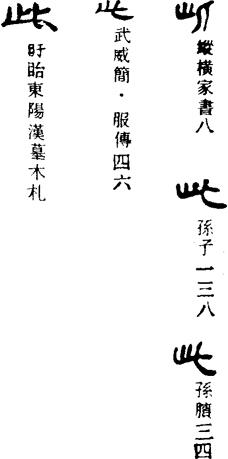 此
縱橫家書八
此
孫子一三八
此
孫臏三四
此
武威簡·服傳四六
此
盱眙東陽漢墓木札